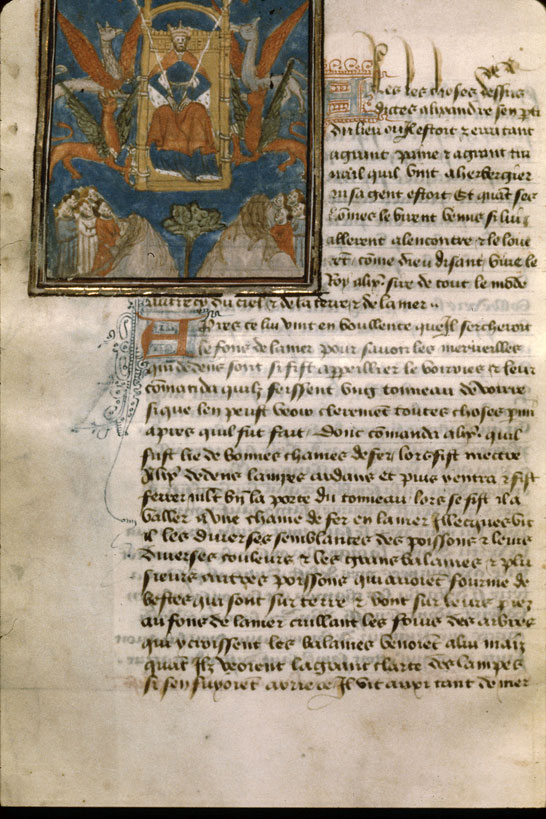 es les choses dessus
dictes alixandre sen pti
du lieu ou Il estoit
agrant paine & agrant tra
uail quil vint a herbergier
ou sa gent estoit Et quāt ses
hōmes le virent venir si luy
allerent alencontre & le loue
rēt cōme dieu disant viue le
Roy alixr sire de tout le mōde
du ciel & de la terre & de la mer
Apres ce lui vint en voullente que Il sercheroit
le fons de la mer pour sauoir les merueilles
qui dedens sont si fist appeiller le voirriers & leur
cōmanda quilz feissent vng tonneau de voirre
si que len peust veoir cleremēt toutes choses pmi
apres quil fut fait Donc cōmanda alixr quil
fust lie de bonnes chaines de fer lors fist mectre
Alixr dedens lampes ardans et puis y entra & fist
fermer la porte du tonneau lors se fist il a
valler a vne chaine de fer en la mer Illecques vit
il les diuerses semblances des poissons & leurs
diuerses couleurs & les grans balaines & plu
sieurs autres poissons qui auoiēt fourme de
bestes qui sont sur terre & vont sur leurs piez
au fons de la mer cuillant les fruis des arbres
qui y croissent les balaines venoiēt a lui maiz
quāt Ilz veoient la grant clarte des lampes
si sen fuyoiēt arriere Il vit aussi tant de mer